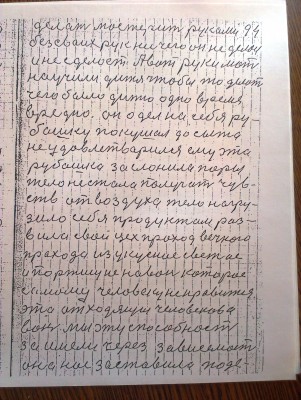 делат мостечит руками 94
без своих рук ничего он не делою
и не сделост А вот руки мат
научили дитя чтобы то делот
чего было дито одно время
вредно. он одел на себя ру-
башку покушал досыта
неудовлетварился ему эта
рубашка заслонила пори
тело нестала получат чув-
ств от воздуха тело нагру-
зило себя продуктам раз-
вила свой цех проход вечного
прахода из укусное светое
и портит не навоз которое
самому человеку ненравится
это отходящия человекова
вон ми эту способност
заимели через зависемост
она нас заставила подв-